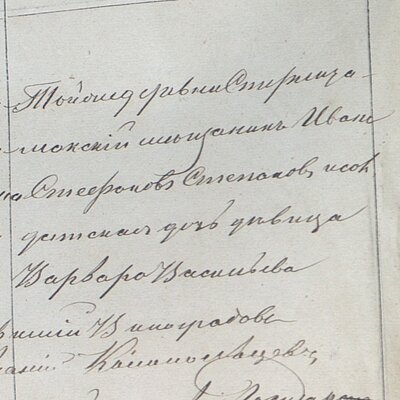 Тойже деревни Стерлита-
макский мещанинъ Иванъ
Стефановъ Степановъ и сол
датская дочь девица
Варвара Васильева
Виноградова